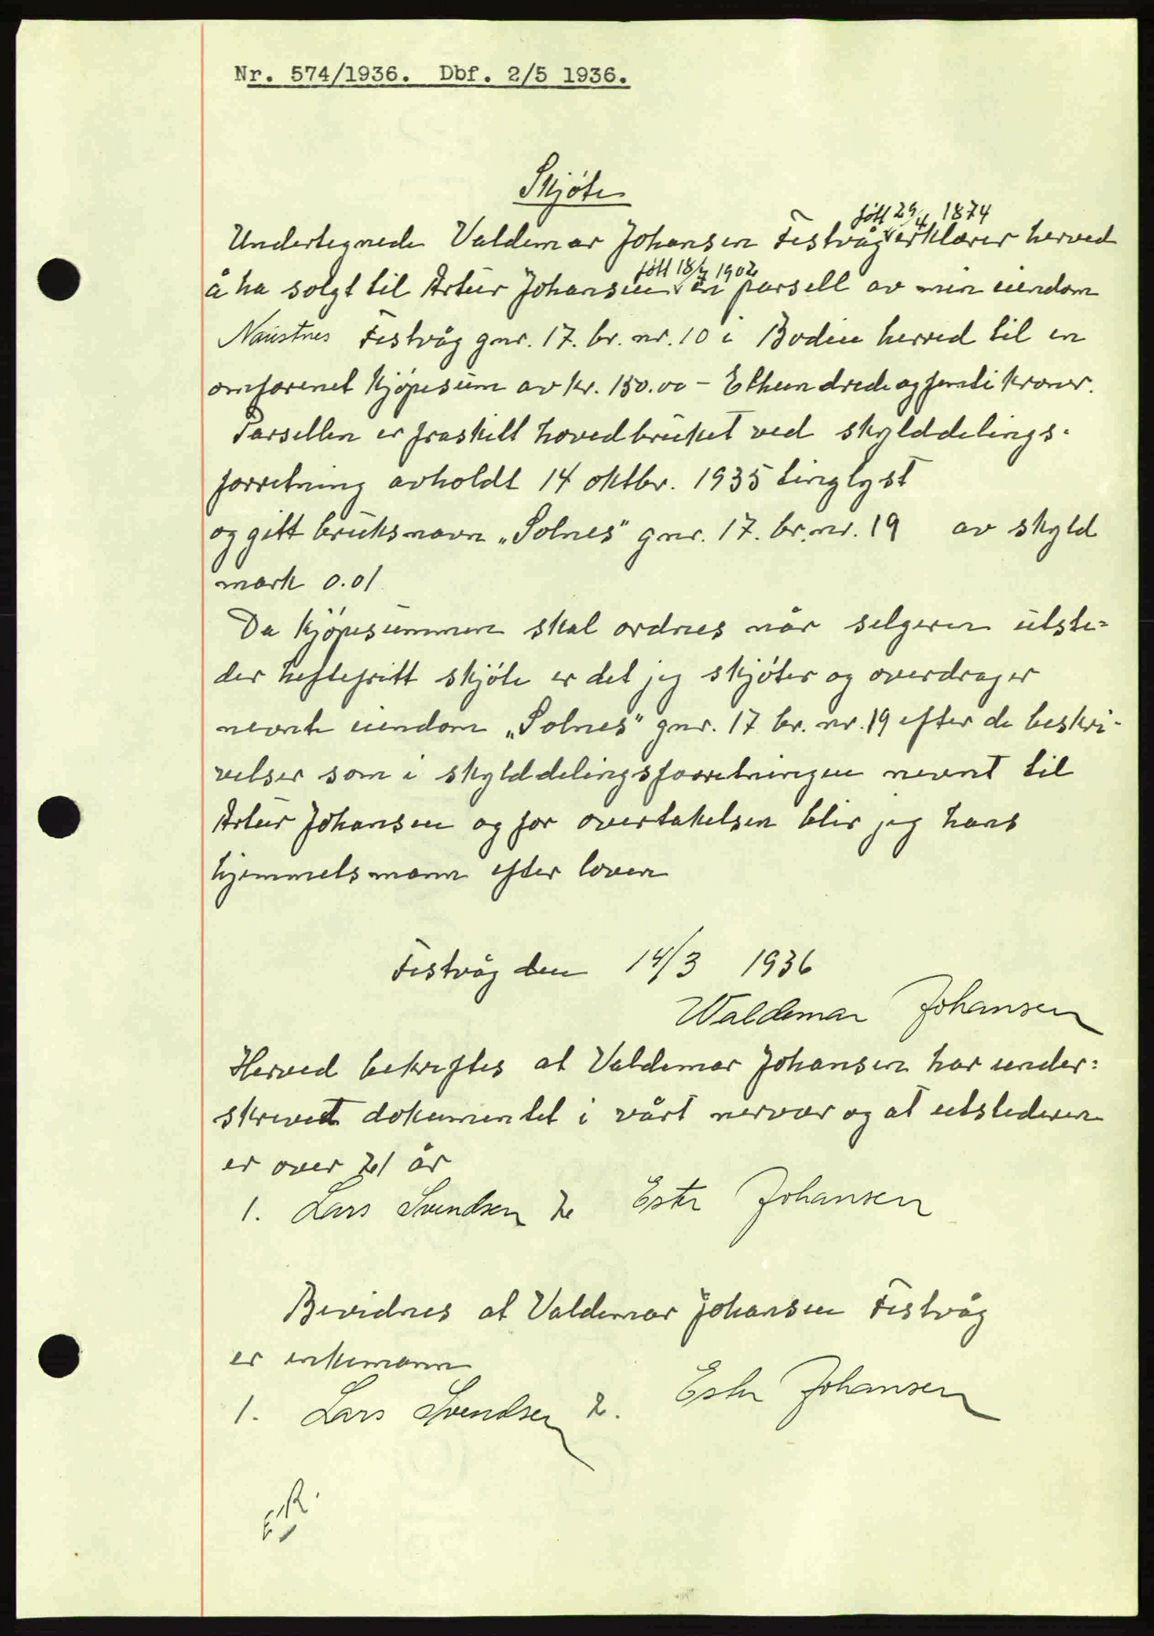 Nr. 574/1936. Dbf. 2/5 1936.
Skjøte
Undertegnede Valdemar Johansen Festvåg født 29/4 1874 erklærer herved
å ha solgt til Artur Johansen født 18/7 1902 en parsell av min eiendom
Naustnes Festvåg gnr. 17. br. nr. 10 i Bodin herred til en
omforenet kjøpesum av kr. 150.00 - Ethundrede og femti kroner.
Parsellen er fraskilt hovedbruket ved skylddelings-
forretning avholdt 14 oktbr. 1935 tinglyst
og gitt bruksnavn „Solnes" gnr. 17. br. nr. 19 av skyld
mark 0.01
Da kjøpesummen skal ordnes når selgeren utste=
der heftefritt skjøte er det jeg skjøter og overdrager
nevnte eiendom „Solnes" gnr. 17 br. nr. 19 efter de beskri-
velser som i skylddelingsforretningen nevnt til
Artur Johansen og for overtakelsen blir jeg hans
hjemmelsmann efter loven
Festvåg den 14/3 1936
Waldemar Johansen
Herved bekreftes at Valdemar Johansen har under=
skrevet dokumentet i vårt nærvær og at utstederen
er over 21 år
1. Lars Svendsen 2. Ester Johansen
Bevidnes at Valdemar Johansen Festvåg
er enkemann
1. Lars Svendsen 2. Ester Johansen